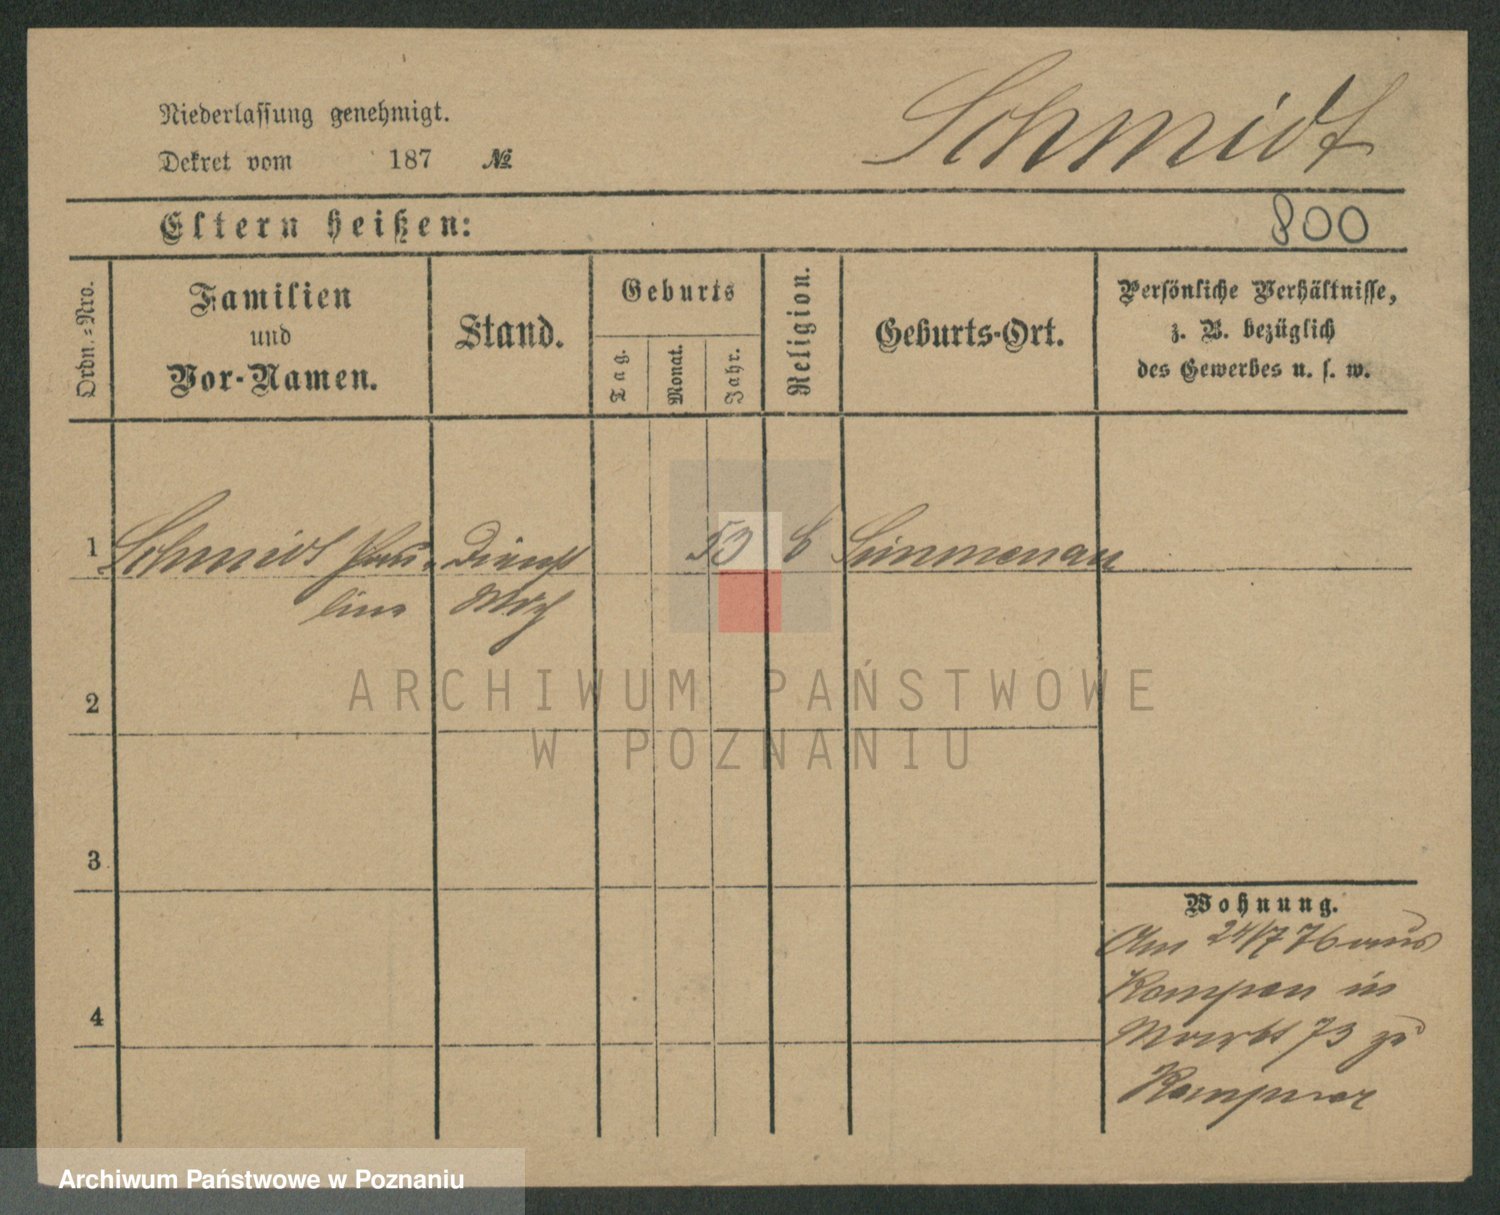 Niederlassung genehmigt.
Schmidt
Dekret vom 187 №
Eltern heißen:
800
Ordn.=Nro.
Familien
und
Vor-Namen.
Stand.
Geburts
Tag.
Monat.
Jahr.
Religion.
Geburts-Ort.
Persönliche Verhältnisse,
z. B. bezüglich
des Gewerbes u. s. w.
1 Schmidt Pau- Dienst 53 Simmenau
line
2
3
4
Wohnung.
Am 24/7 76 aus
Kempen in
Markt 73 zu
ARCHIWUM PAŃSTWOWE
W POZNANIU
Archiwum Państwowe w Poznaniu